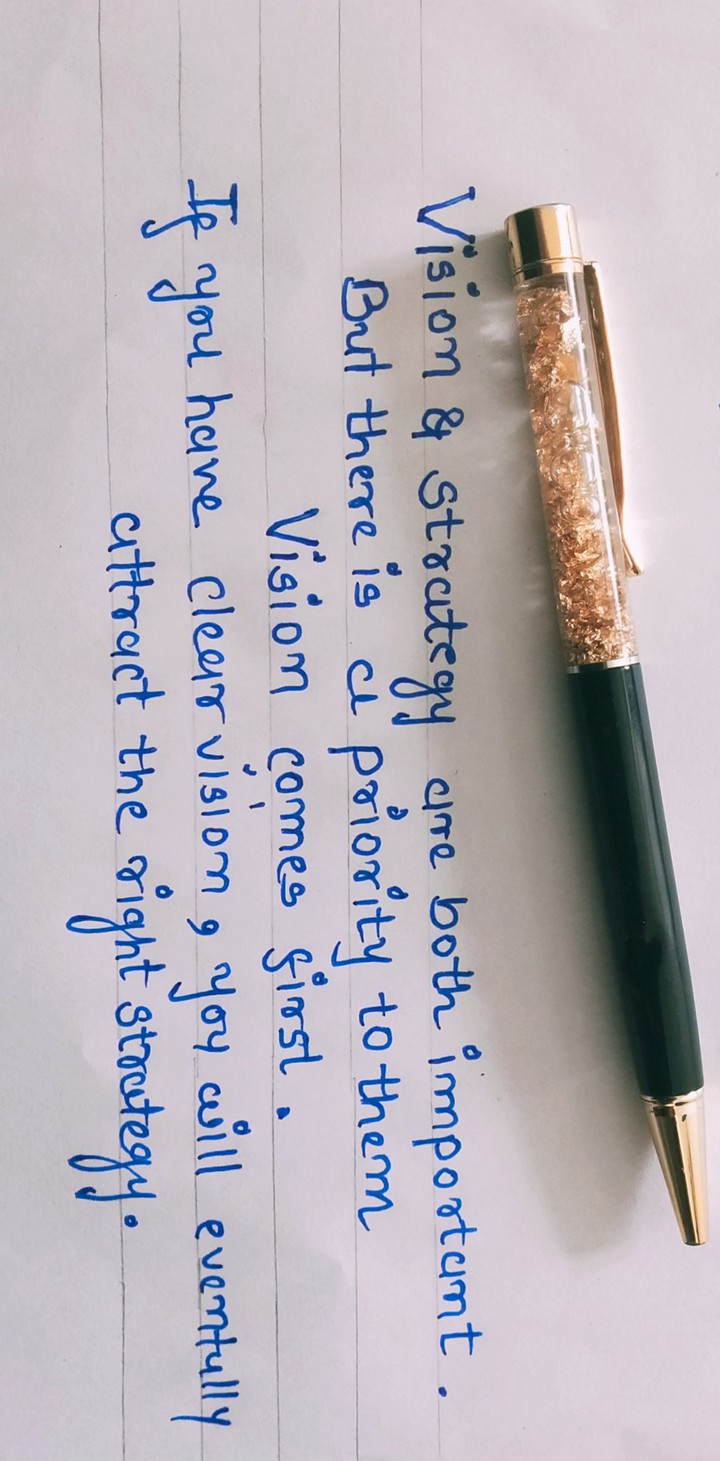 Vision & Strategy are both important.
But there is a priority to them
Vision comes first.
If you have clear vision, you will eventully
attract the right strategy.